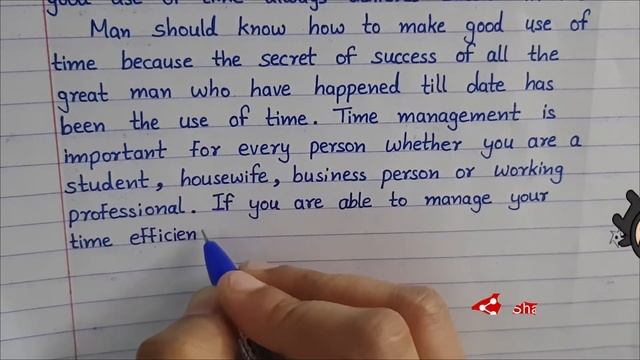 good use of time always
Man should know how to make good use of
time because the secret of success of all the
great man who have happened till date has
been the use of time. Time management is
important for every person whether you are a
student, housewife, business person or working
professional. If you are able to manage your
time efficien
Sha